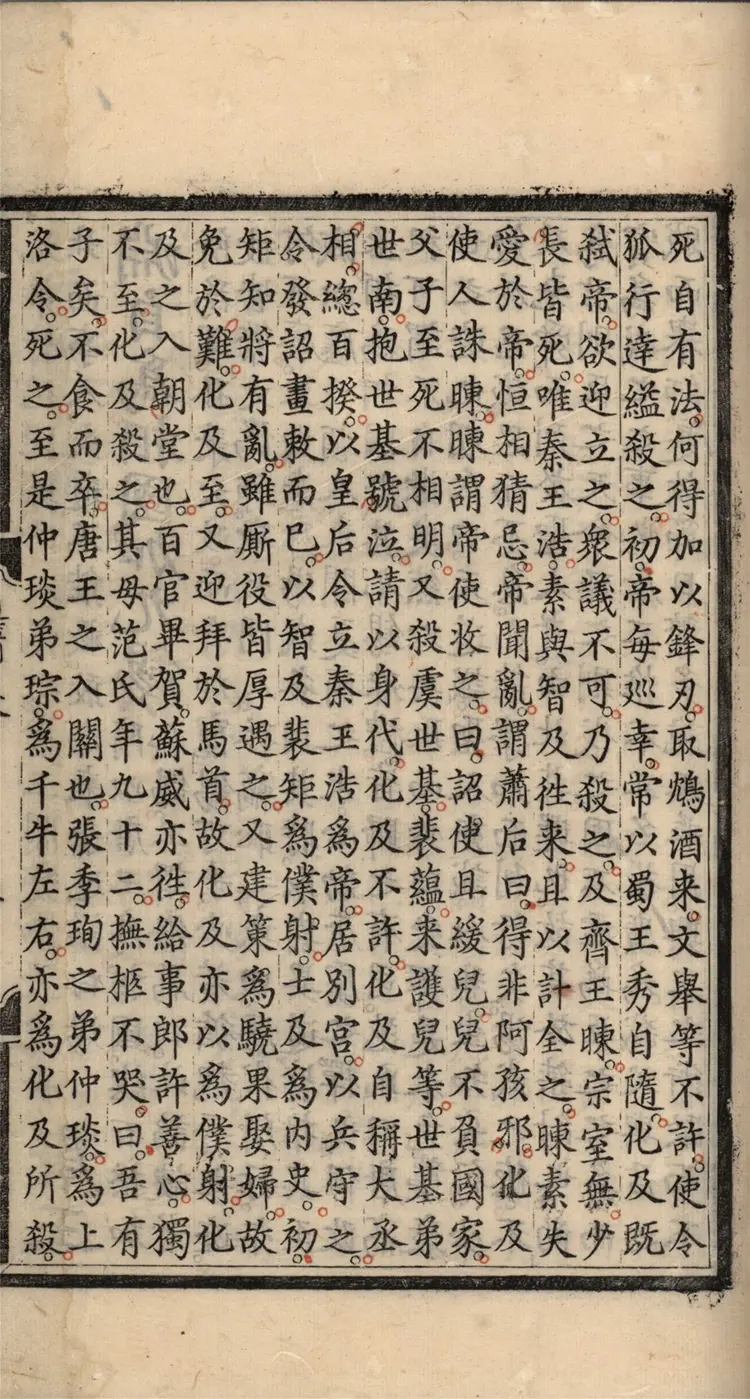 死自有法何得加以鋒刃取鴆酒来文舉等不許使令
狐行達縊殺之初帝每廵幸常以蜀王秀自隨化及既
弑帝欲迎立之衆議不可乃殺之及齊王暕宗室無少
長皆死唯秦王浩素與智及徃来且以計全之暕素失
愛於帝恒相猜忌帝聞亂謂蕭后曰得非阿孩邪化及
使人誅暕暕謂帝使收之曰詔使且緩兒兒不負國家
父子至死不相明又殺虞世基裴蘊来護兒等世基弟
世南抱世基號泣請以身代化及不許化及自稱大丞
相總百揆以皇后令立秦王浩爲帝居別宮以兵守之
令發詔畫敕而巳以智及裴矩爲僕射士及爲内史初
矩知將有亂雖厮役皆厚遇之又建策爲驍果娶婦故
免於難化及至又迎拜於馬首故化及亦以爲僕射化
及之入朝堂也百官畢賀蘇威亦徃給事郎許善心獨
不至化及殺之其母范氏年九十二撫柩不哭曰吾有
子矣不食而卒唐王之入關也張季珣之弟仲琰爲上
洛令死之至是仲琰弟琮爲千牛左右亦爲化及所殺